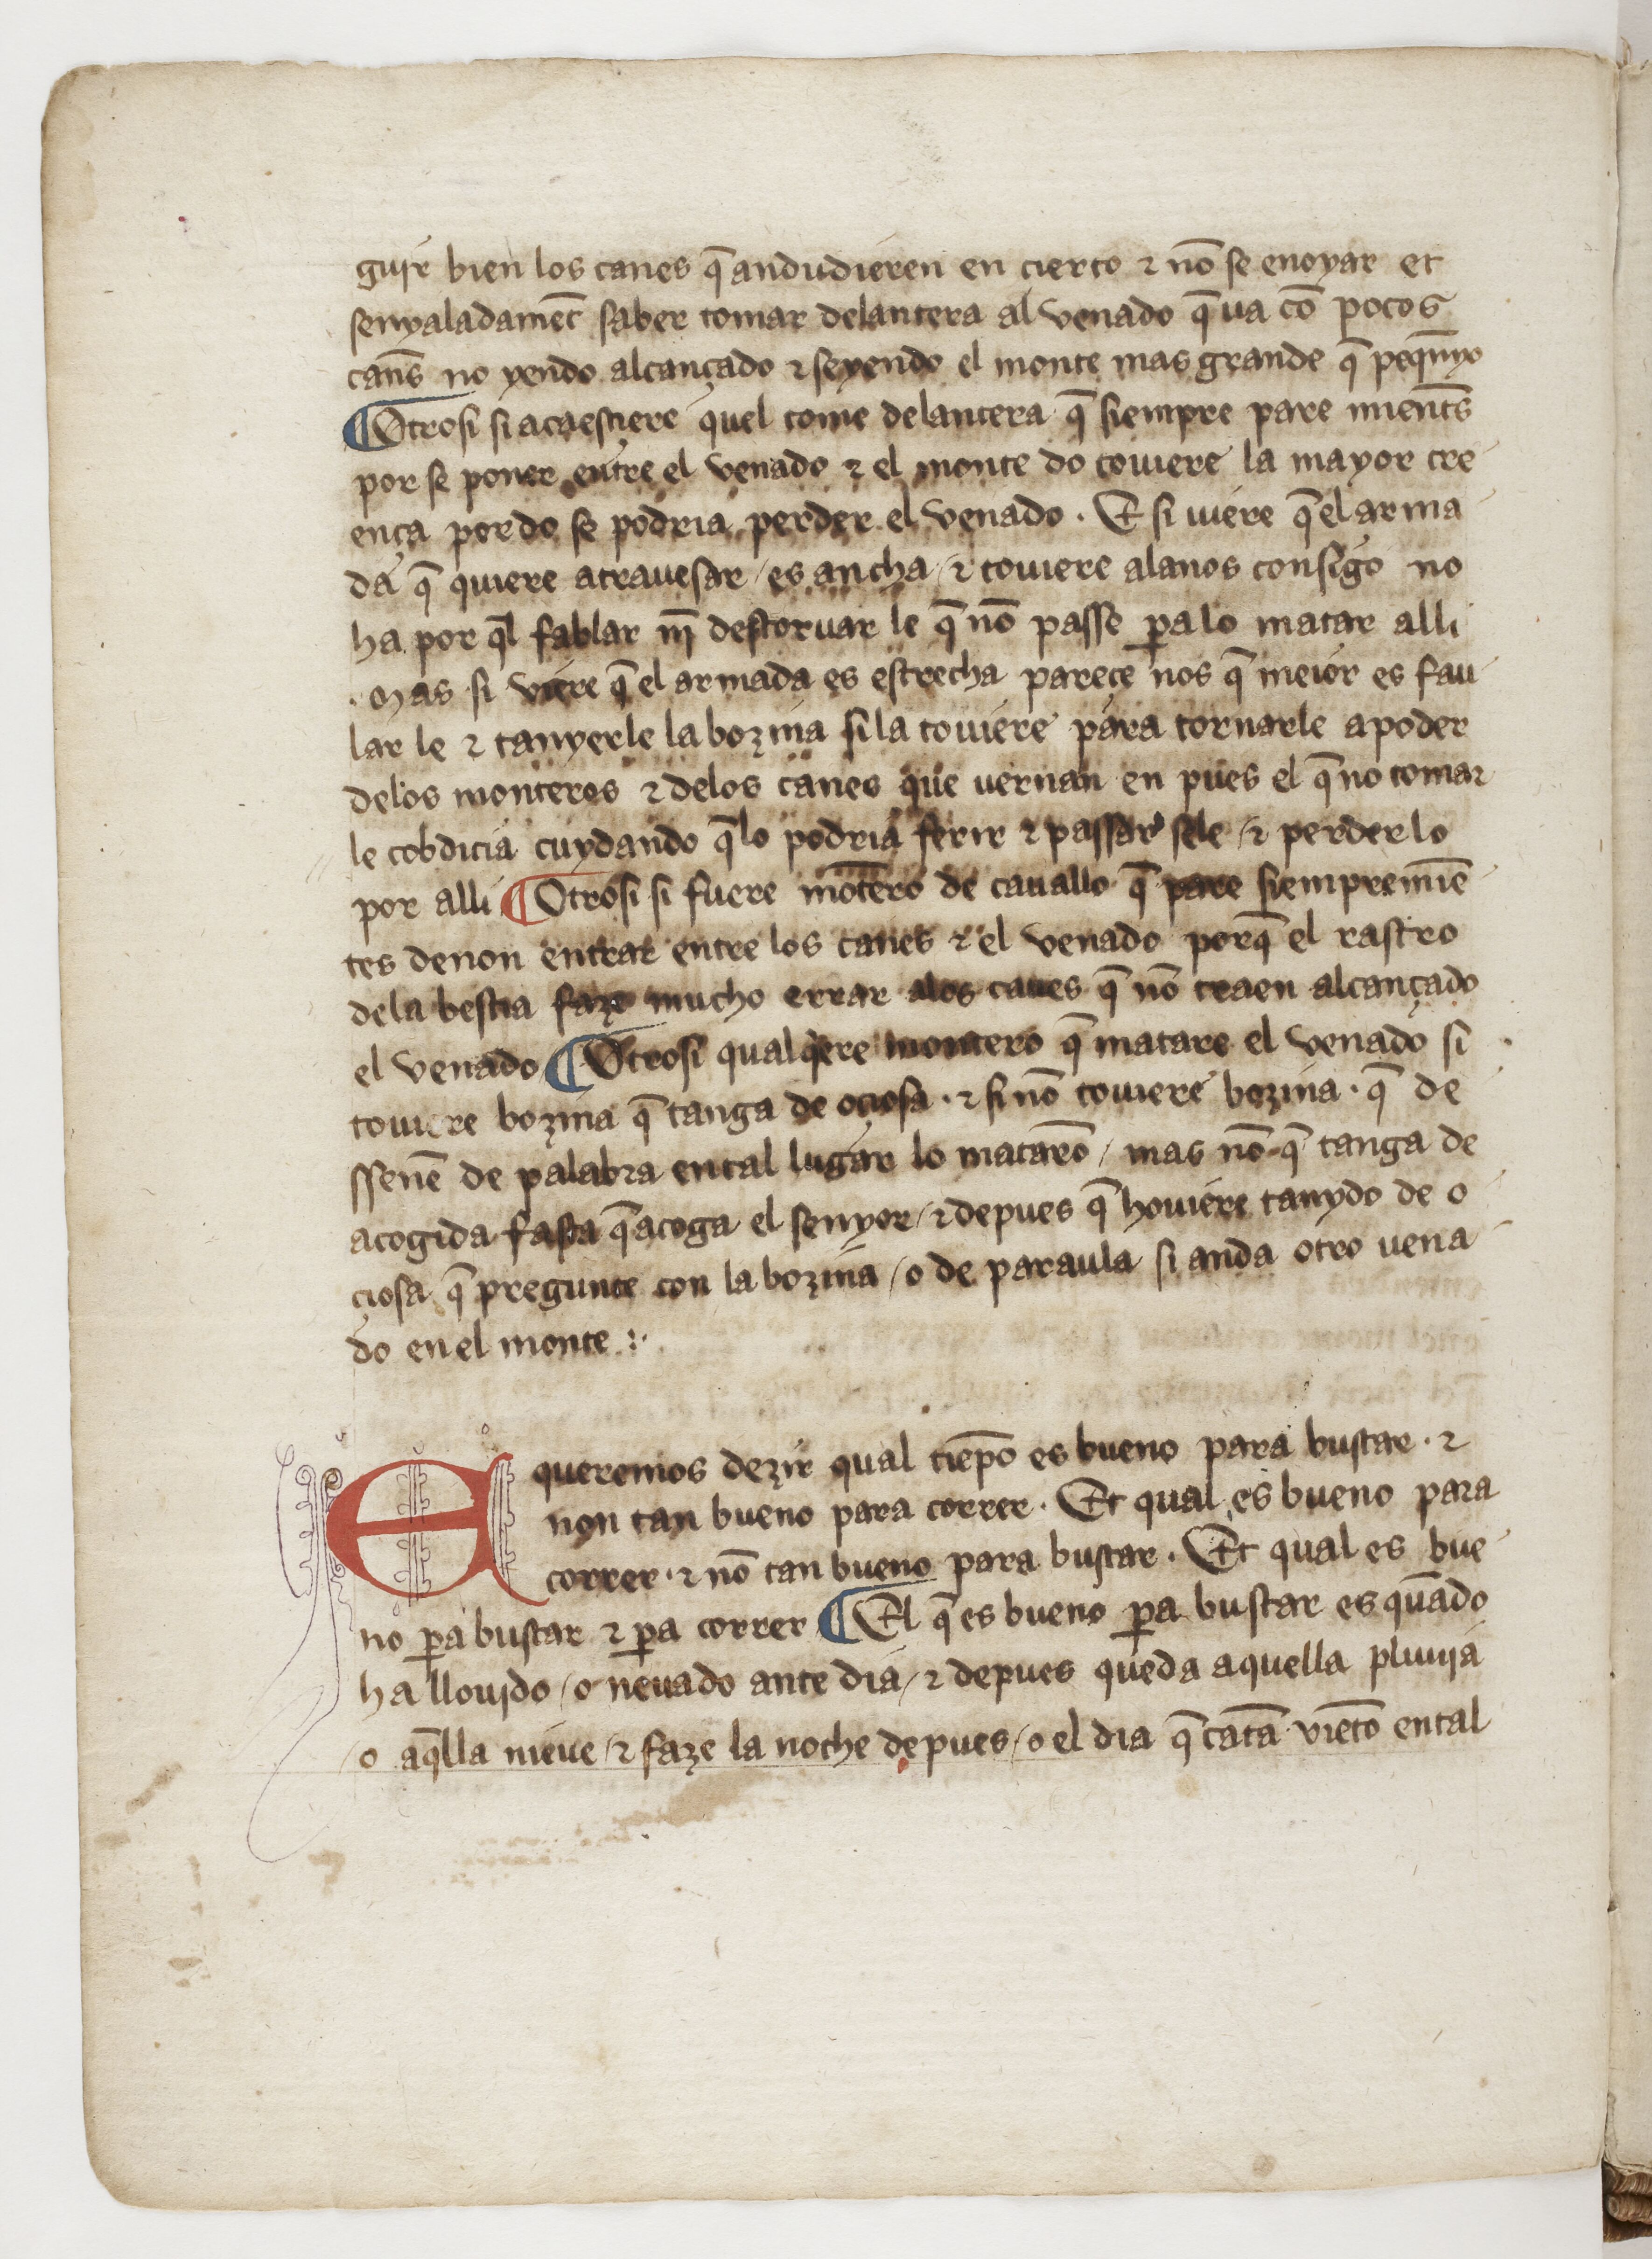 guir bien los canes q̃ andudieren en cierto ⁊ nõ se enoyar et
senyaladamẽt saber tomar delantera al venado q̃ ua cõ pocos
cañs no yendo alcançado ⁊ seyendo el monte mas grande q̃ peq̃nyo
¶ Otrosi si acaesciere quel tome delantera q̃ siempre pare mient̃s
por se poner entre el venado ⁊ el monte do touiere la mayor cre
ença por do se podria perder el venado . Et si uiere q̃ el arma
da q̃ quiere atrauesar / es ancha / ⁊ touiere alanos consigo no
ha por q̃l fablar nĩ destoruar le q̃ nõ passe ꝑa lo matar alli
. Mas si viere q̃ el armada es estrecha parece nos q̃ meior es fau
lar le ⁊ tanyerle la bozina si la touiere para tornarle a poder
delos monteros ⁊ delos canes que uernan en pues el q̃ no tomar
le cobdicia cuydando q̃ lo podria ferir ⁊ passar sele / ⁊ perder lo
por alli ¶ Otrosi si fuere mõtero de cauallo q̃ pare siempre miẽ
tes de non entrar entre los canes ⁊ el venado porq̃ el rastro
dela bestia faze mucho errar alos canes q̃ nõ traen alcançado
el venado ¶ Otrosi qualq̃ere montero q̃ matare el venado si
touiere bozina q̃ tanga de ociosa . ⁊ si nõ touiere bozina . q̃ de
ssenẽ de palabra en tal lugar lo matarõ / mas nõ q̃ tanga de
acogida fasta q̃ acoga el senyor / ⁊ depues q̃ houiere tanydo de o
ciosa q̃ pregunte con la bozina / o de paraula si anda otro uena
do en el monte :.
E queremos dezir qual tiẽpo es bueno para buscar . ⁊
non tan bueno para correr . Et qual es bueno para
correr . ⁊ nõ tan bueno para buscar . Et qual es bue
no ꝑa buscar ⁊ ꝑa correr ¶ El q̃ es bueno ꝑa buscar es quãdo
ha llouido / o neuado ante dia / ⁊ depues queda aquella pluuia
/ o aq̃lla nieue / ⁊ faze la noche depues / o el dia q̃ catã viẽto en tal